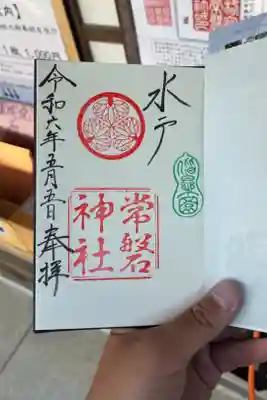 水戸
常磐
神社
令和六年五月五日奉拝
1枚 1,000円